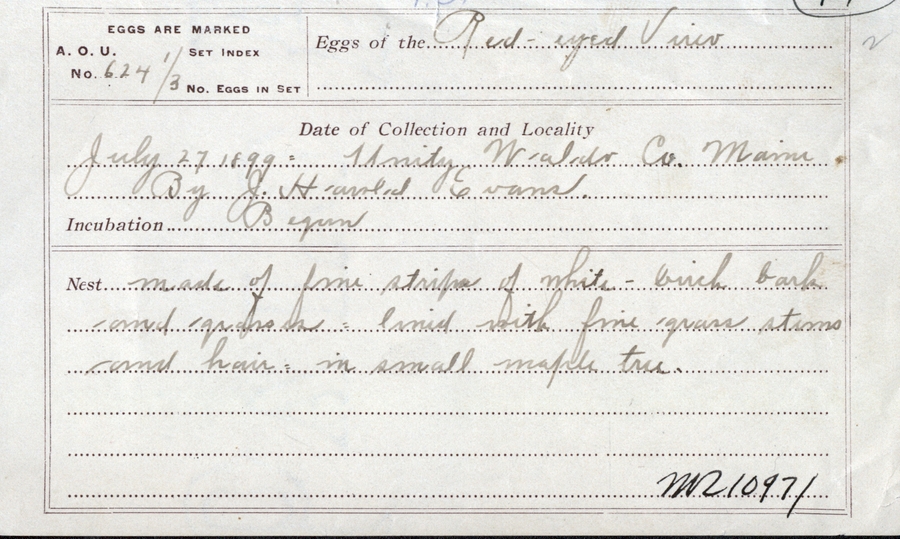 EGGS ARE MARKED
A. O. U. No. 624 1/3 SET INDEX
No. EGGS IN SET
Eggs of the Red-eyed Vireo
Date of Collection and Locality
July 27 1899= Unity, Waldo Co. Maine
By J. Harold Evans.
Incubation Begun
Nest made of fine strips of white-birch bark
and grass = lined with fine grass stems
and hair = in small maple tree.
10971